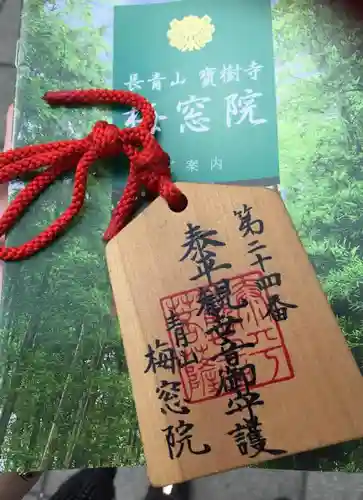 長青山 寳樹寺
梅窓院
ご案内
第二十四番
泰平観世音御守護
青山
梅窓院